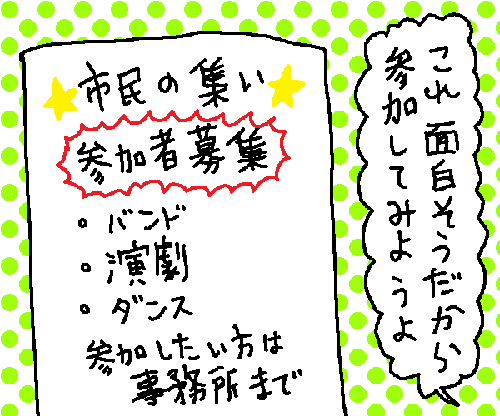 これ面白そうだから
参加してみようよ
市民の集い
参加者募集
・バンド
・演劇
・ダンス
参加したい方は
事務所まで